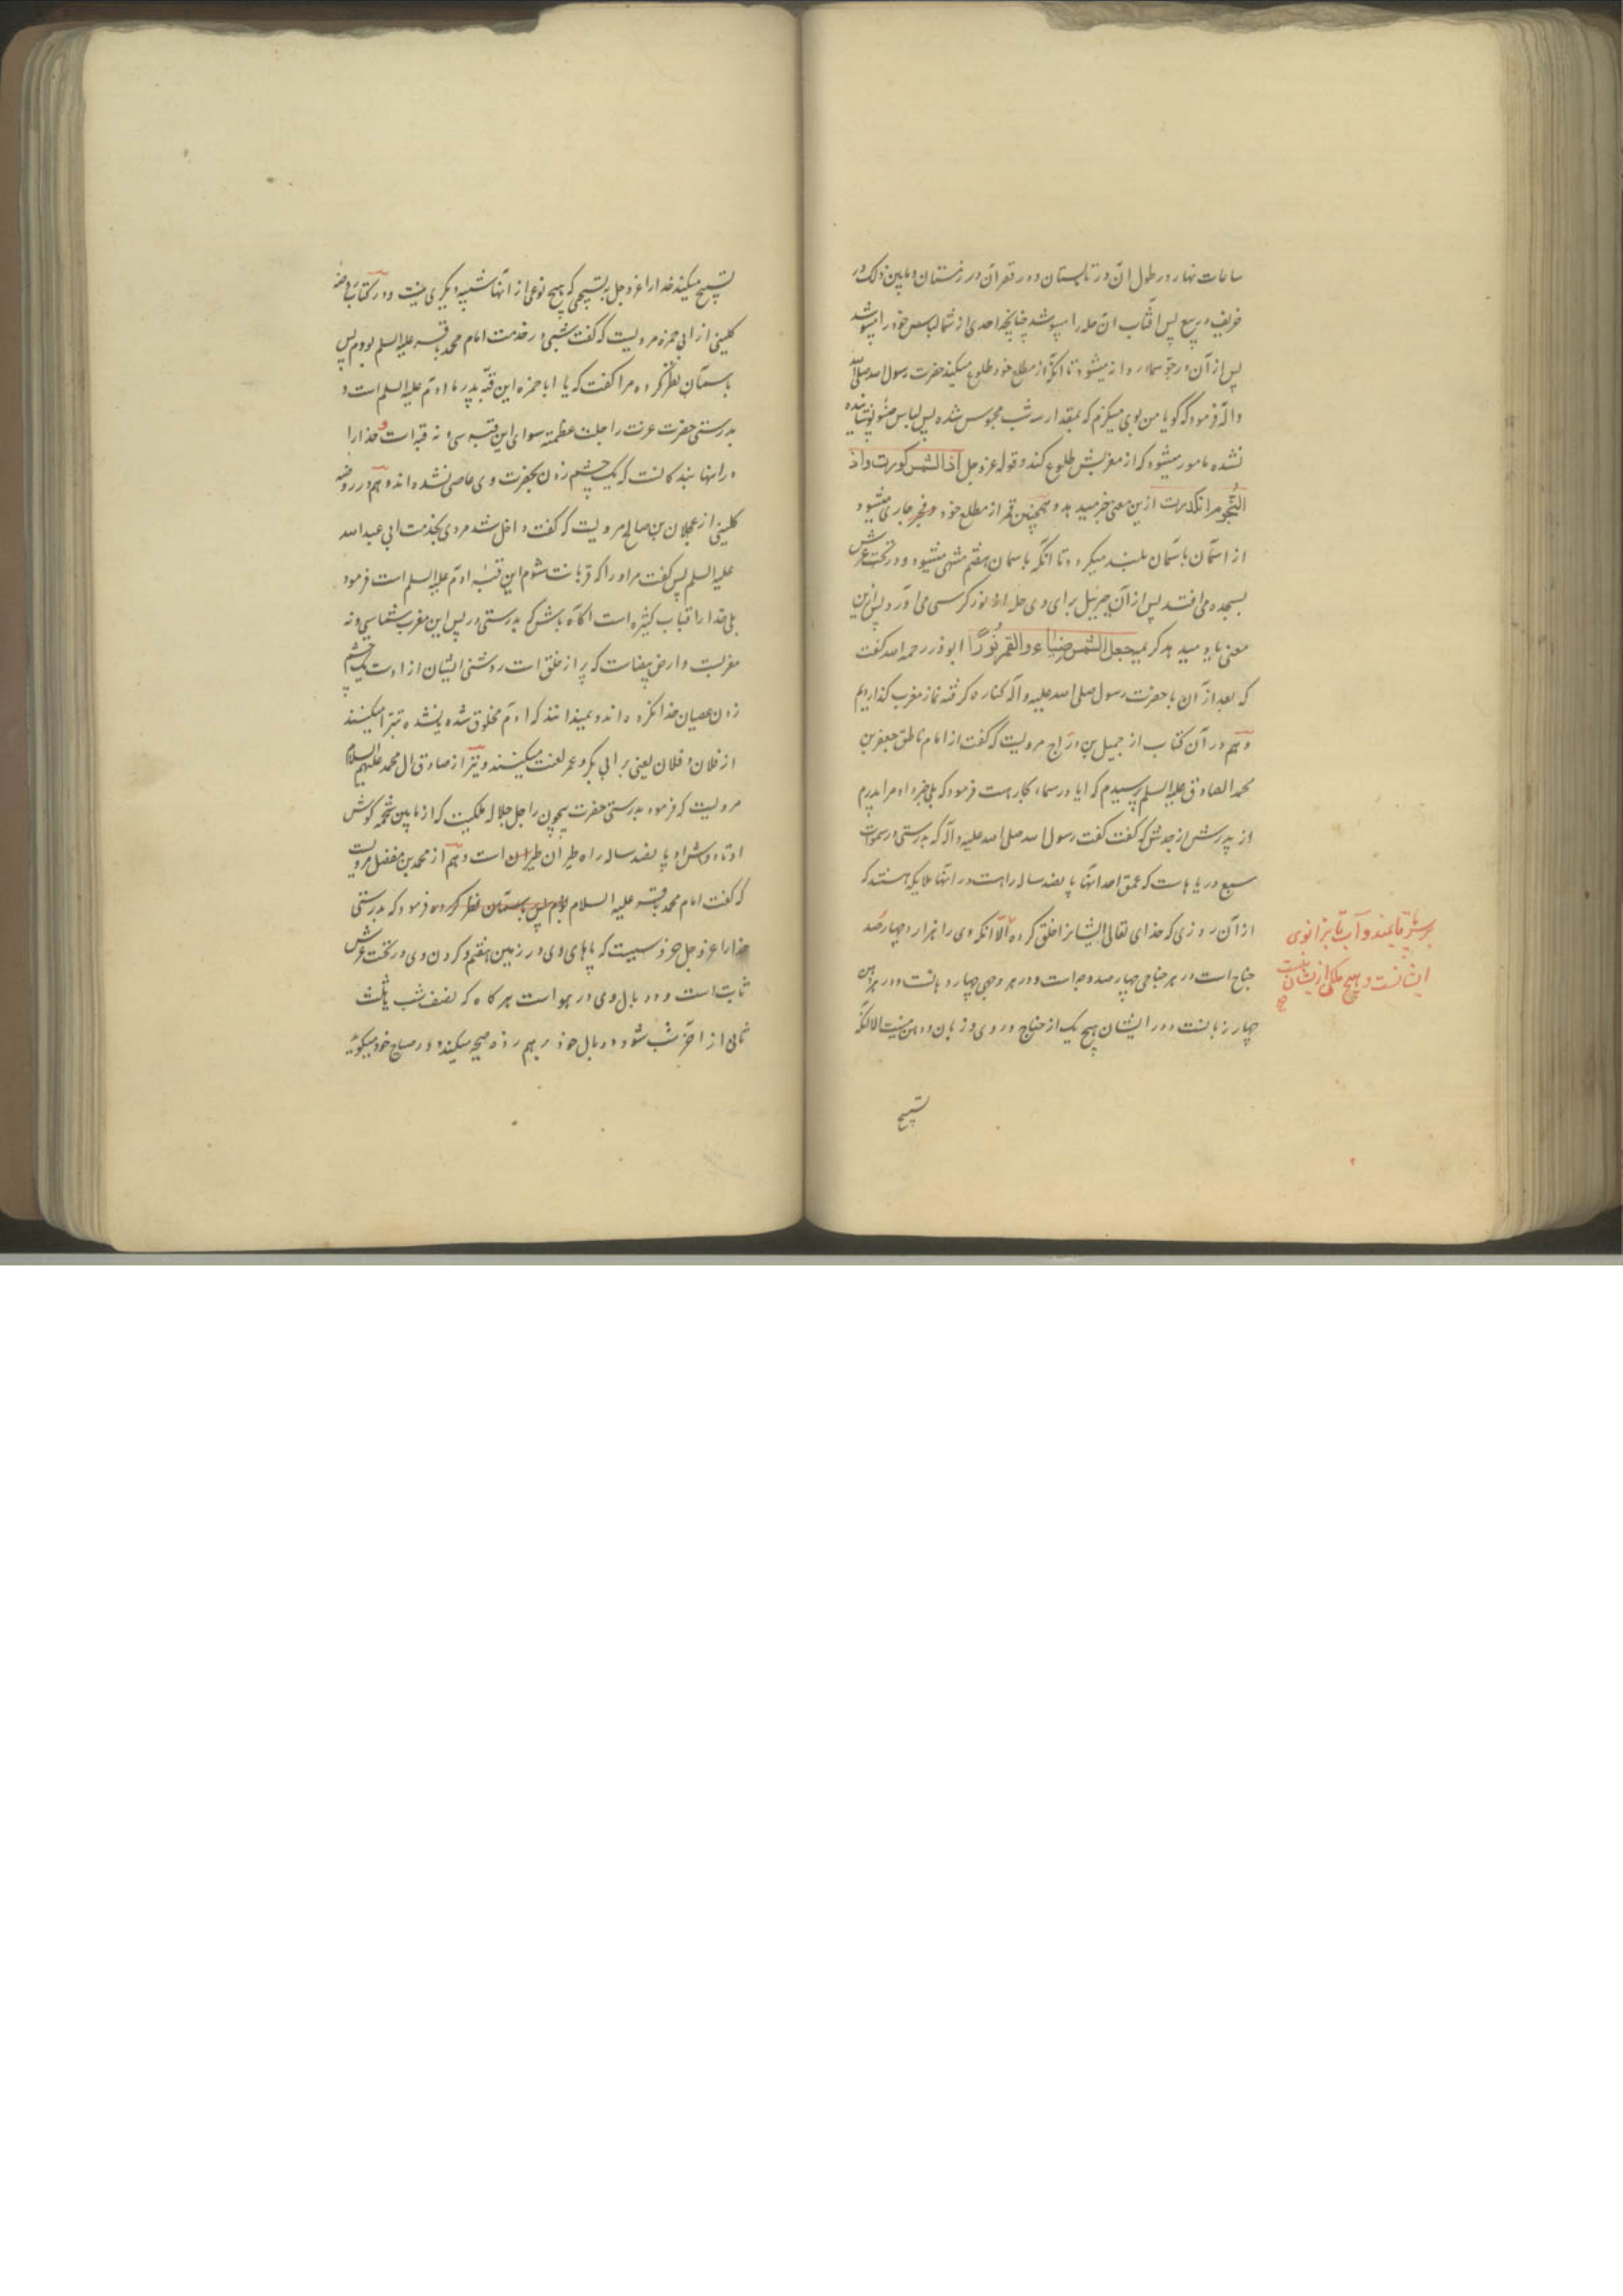 ساعات نهار در طول ان در تابستان و در قصر ان در زمستان و مابین ذلک در
خریف و ربیع پس افتاب ان حله را میپوشد چنانچه احدی از شما لباس خود را میپوشد
پس از آن در جو سماء روانه میشود تا انکه از مطلع خود طلوع میکند حضرت رسول الله صلی الله
و اله فرمود که کویا من بوی مینکرم که بمقدار سه شب محبوس شده پس لباس ضوء پوشانیده
نشده مامور میشود که از مغربش طلوع کند و قوله عز و جل اذا الشمس کورت و اذ
النجوم انکدرت ازین معنی خبر میدهد و همچنین قمر از مطلع خود و مجرا جاری میشود
از اسمان باسمان بلند میکردد تا انکه باسمان هفتم منتهی میشود و در تحت عرش
بسجده می افتد پس از آن جبرئیل برای وی حله از نور کرسی می اورد و پس ازین
معنی یاد میدهد کریمه جعل الشمس ضیاء و القمر نورا ابوذر رحمه الله کفت
که بعد از آن با حضرت رسول صلی الله علیه و اله کناره کرفته نماز مغرب کذاردیم
و هم در آن کتاب از جمیل بن دراج مرویست که کفت از امام ناطق جعفر بن
محمد الصادق علیه السلم پرسیدم که ایا در سماء بحار هست فرمود که بلی خبر داد مرا پدرم
از پدرش از جدش که کفت کفت رسول الله صلی الله علیه و اله که بدرستی در سموات
سبع دریاها ست که عمق احد انها پانصد ساله راهست در انها ملایکه هستند که
از آن روزی که خدای تعالی ایشانرا خلق کرده الا انکه وی را هزار و چهارصد
جناح است در هر جناحی چهار وجه است و در هر وجهی چهار زبانست و در هر
چهار زبانست و در ایشان هیچ یک از جناح و روی و زبان و دهن نیست الا انکه
بر سر پا قایمند و آب تا بزانوی
ایشانست و هیچ ملکی از ایشان نیست
صح
تسبیح
تسبیح میکند خدا را عز و جل به تسبیحی که هیچ نوعی از انها شبیه دیکری نیست و در کتاب روضه
کلینی از ابی حمزه مرویست که کفت شبی در خدمت امام محمد باقر علیه السلم بودم پس
باسمان نظر کرده مرا کفت که یا ابا حمزه این قبه پدر ما ادم علیه السلم است و
بدرستی حضرت عزت را جلت عظمته سوای این قبه سی و نه قبه است و خدا را
در انها بندکانست که یک چشم زدن بحضرت وی عاصی نشده اند و هم در روضه
کلینی از عجلان بن صالح مرویست که کفت داخل شد مردی بخدمت ابی عبد الله
علیه السلم پس کفت مر او را که قربانت شوم این قبه ادم علیه السلم است فرمود
بلی خدا را قباب کثیره است اکاه باش که بدرستی در پس این مغرب شما سی و نه
مغربست و ارض بیضاست که پر از خلق است روشنی ایشان از اوست یک چشم
زدن عصیان خدا نکرده اند و نمیدانند که ادم مخلوق شده یا نشده تبرا میکنند
از فلان و فلان یعنی بر ابی بکر و عمر لعنت میکنند و نیز از صادق ال محمد علیهم السلام
مرویست که فرمود بدرستی حضرت بیچون را جل جلاله ملکیست که از مابین شحمه کوش
او تا دوش او پانصد ساله راه طیران طیران است و هم از محمد بن مفضل مرویست
که کفت امام محمد باقر علیه السلام بودم پس باسمان نظر کرده فرمود که بدرستی
خدا را عز و جل خروسیست که پاهای وی در زمین هفتم و کردن وی در تحت عرش
ثابت است و دو بال وی در هواست هر کاه که نصف شب یا ثلث
ثانی از اخر شب شود دو بال خود بر هم زده صیحه میکند و در صیاح خود میکوید